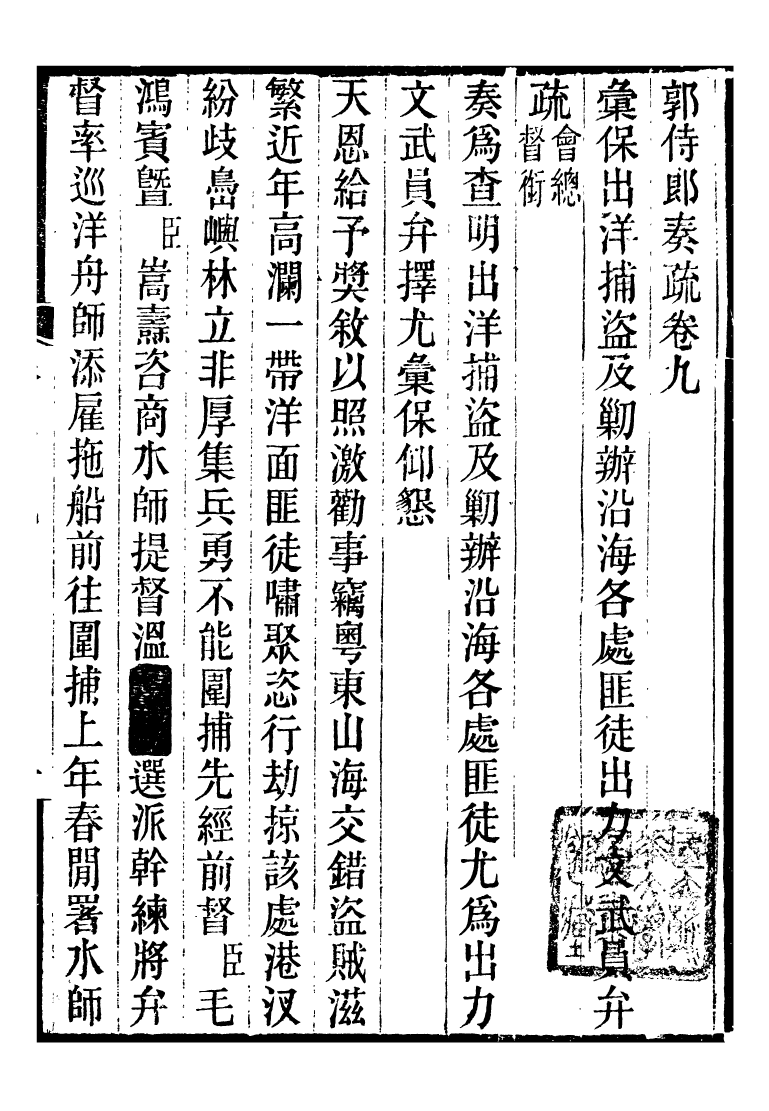 郭侍郎奏疏卷九
彙保出洋捕盜及剿辦沿海各處匪徒出力文武員弁
疏會總督銜
奏爲查明出洋捕盜及剿辦沿海各處匪徒尤爲出力
文武員弁擇尤彙保仰懇
天恩給予獎敘以照激勸事竊粵東山海交錯盜賊滋
繁近年高瀾一帶洋面匪徒嘯聚恣行劫掠該處港汊
紛歧嶨嶼林立非厚集兵勇不能圍捕先經前督臣毛
鴻賓曁臣嵩燾咨商水師提督溫選派幹練將弁
督率巡洋舟師添雇拖船前往圍捕上年春閒署水師